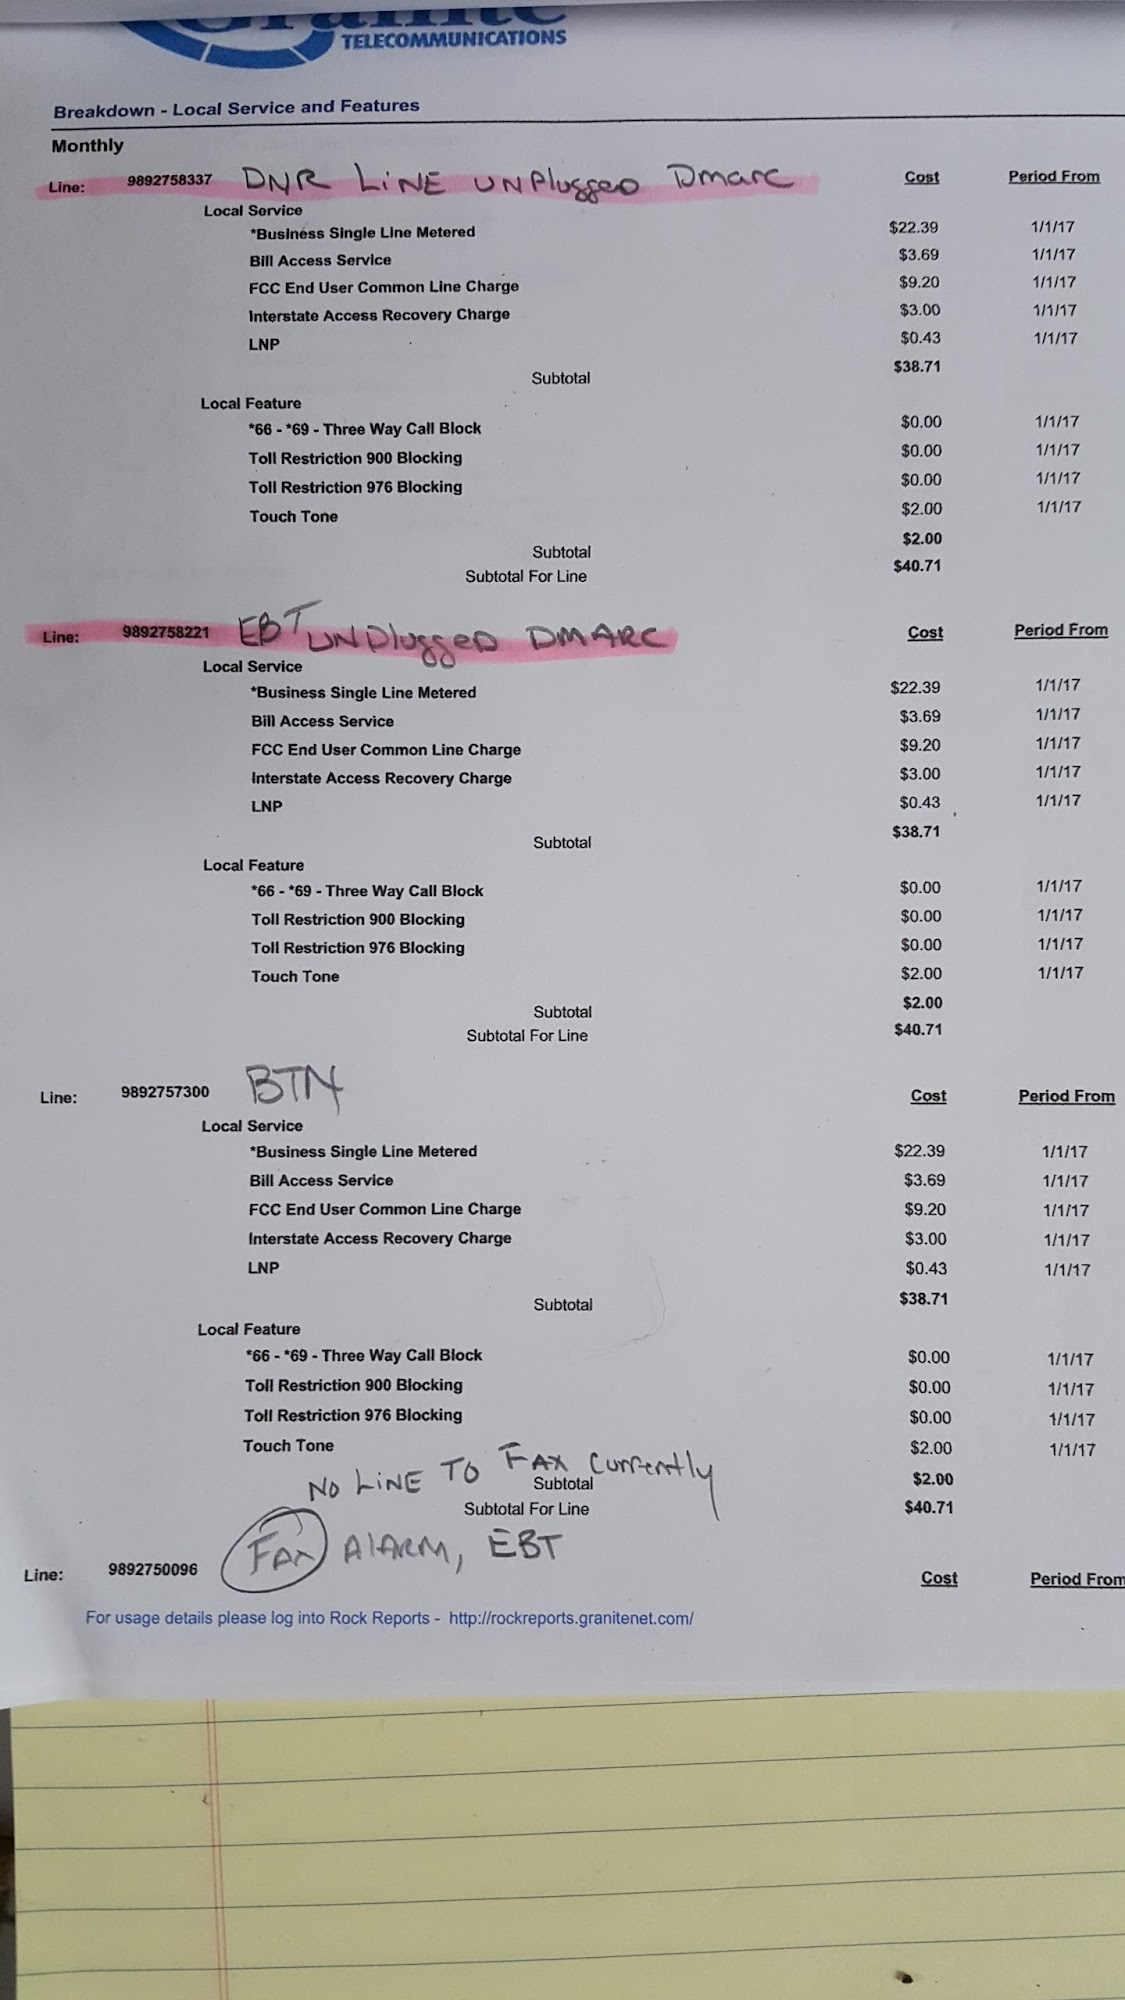 Granite
TELECOMMUNICATIONS
Breakdown - Local Service and Features
Monthly
Line: 9892758337 DNR LINE UNPlugged Dmarc Cost Period From
Local Service
*Business Single Line Metered $22.39 1/1/17
Bill Access Service $3.69 1/1/17
FCC End User Common Line Charge $9.20 1/1/17
Interstate Access Recovery Charge $3.00 1/1/17
LNP $0.43 1/1/17
Subtotal $38.71
Local Feature
*66 - *69 - Three Way Call Block $0.00 1/1/17
Toll Restriction 900 Blocking $0.00 1/1/17
Toll Restriction 976 Blocking $0.00 1/1/17
Touch Tone $2.00 1/1/17
Subtotal $2.00
Subtotal For Line $40.71
Line: 9892758221 EBT UNPluggeD DMARC Cost Period From
Local Service
*Business Single Line Metered $22.39 1/1/17
Bill Access Service $3.69 1/1/17
FCC End User Common Line Charge $9.20 1/1/17
Interstate Access Recovery Charge $3.00 1/1/17
LNP $0.43 1/1/17
Subtotal $38.71
Local Feature
*66 - *69 - Three Way Call Block $0.00 1/1/17
Toll Restriction 900 Blocking $0.00 1/1/17
Toll Restriction 976 Blocking $0.00 1/1/17
Touch Tone $2.00 1/1/17
Subtotal $2.00
Subtotal For Line $40.71
Line: 9892757300 BTN Cost Period From
Local Service
*Business Single Line Metered $22.39 1/1/17
Bill Access Service $3.69 1/1/17
FCC End User Common Line Charge $9.20 1/1/17
Interstate Access Recovery Charge $3.00 1/1/17
LNP $0.43 1/1/17
Subtotal $38.71
Local Feature
*66 - *69 - Three Way Call Block $0.00 1/1/17
Toll Restriction 900 Blocking $0.00 1/1/17
Toll Restriction 976 Blocking $0.00 1/1/17
Touch Tone $2.00 1/1/17
NO LINE TO FAX Currently
Subtotal $2.00
Subtotal For Line $40.71
Line: 9892750096 FAX AlARM, EBT Cost Period From
For usage details please log into Rock Reports - http://rockreports.granitenet.com/